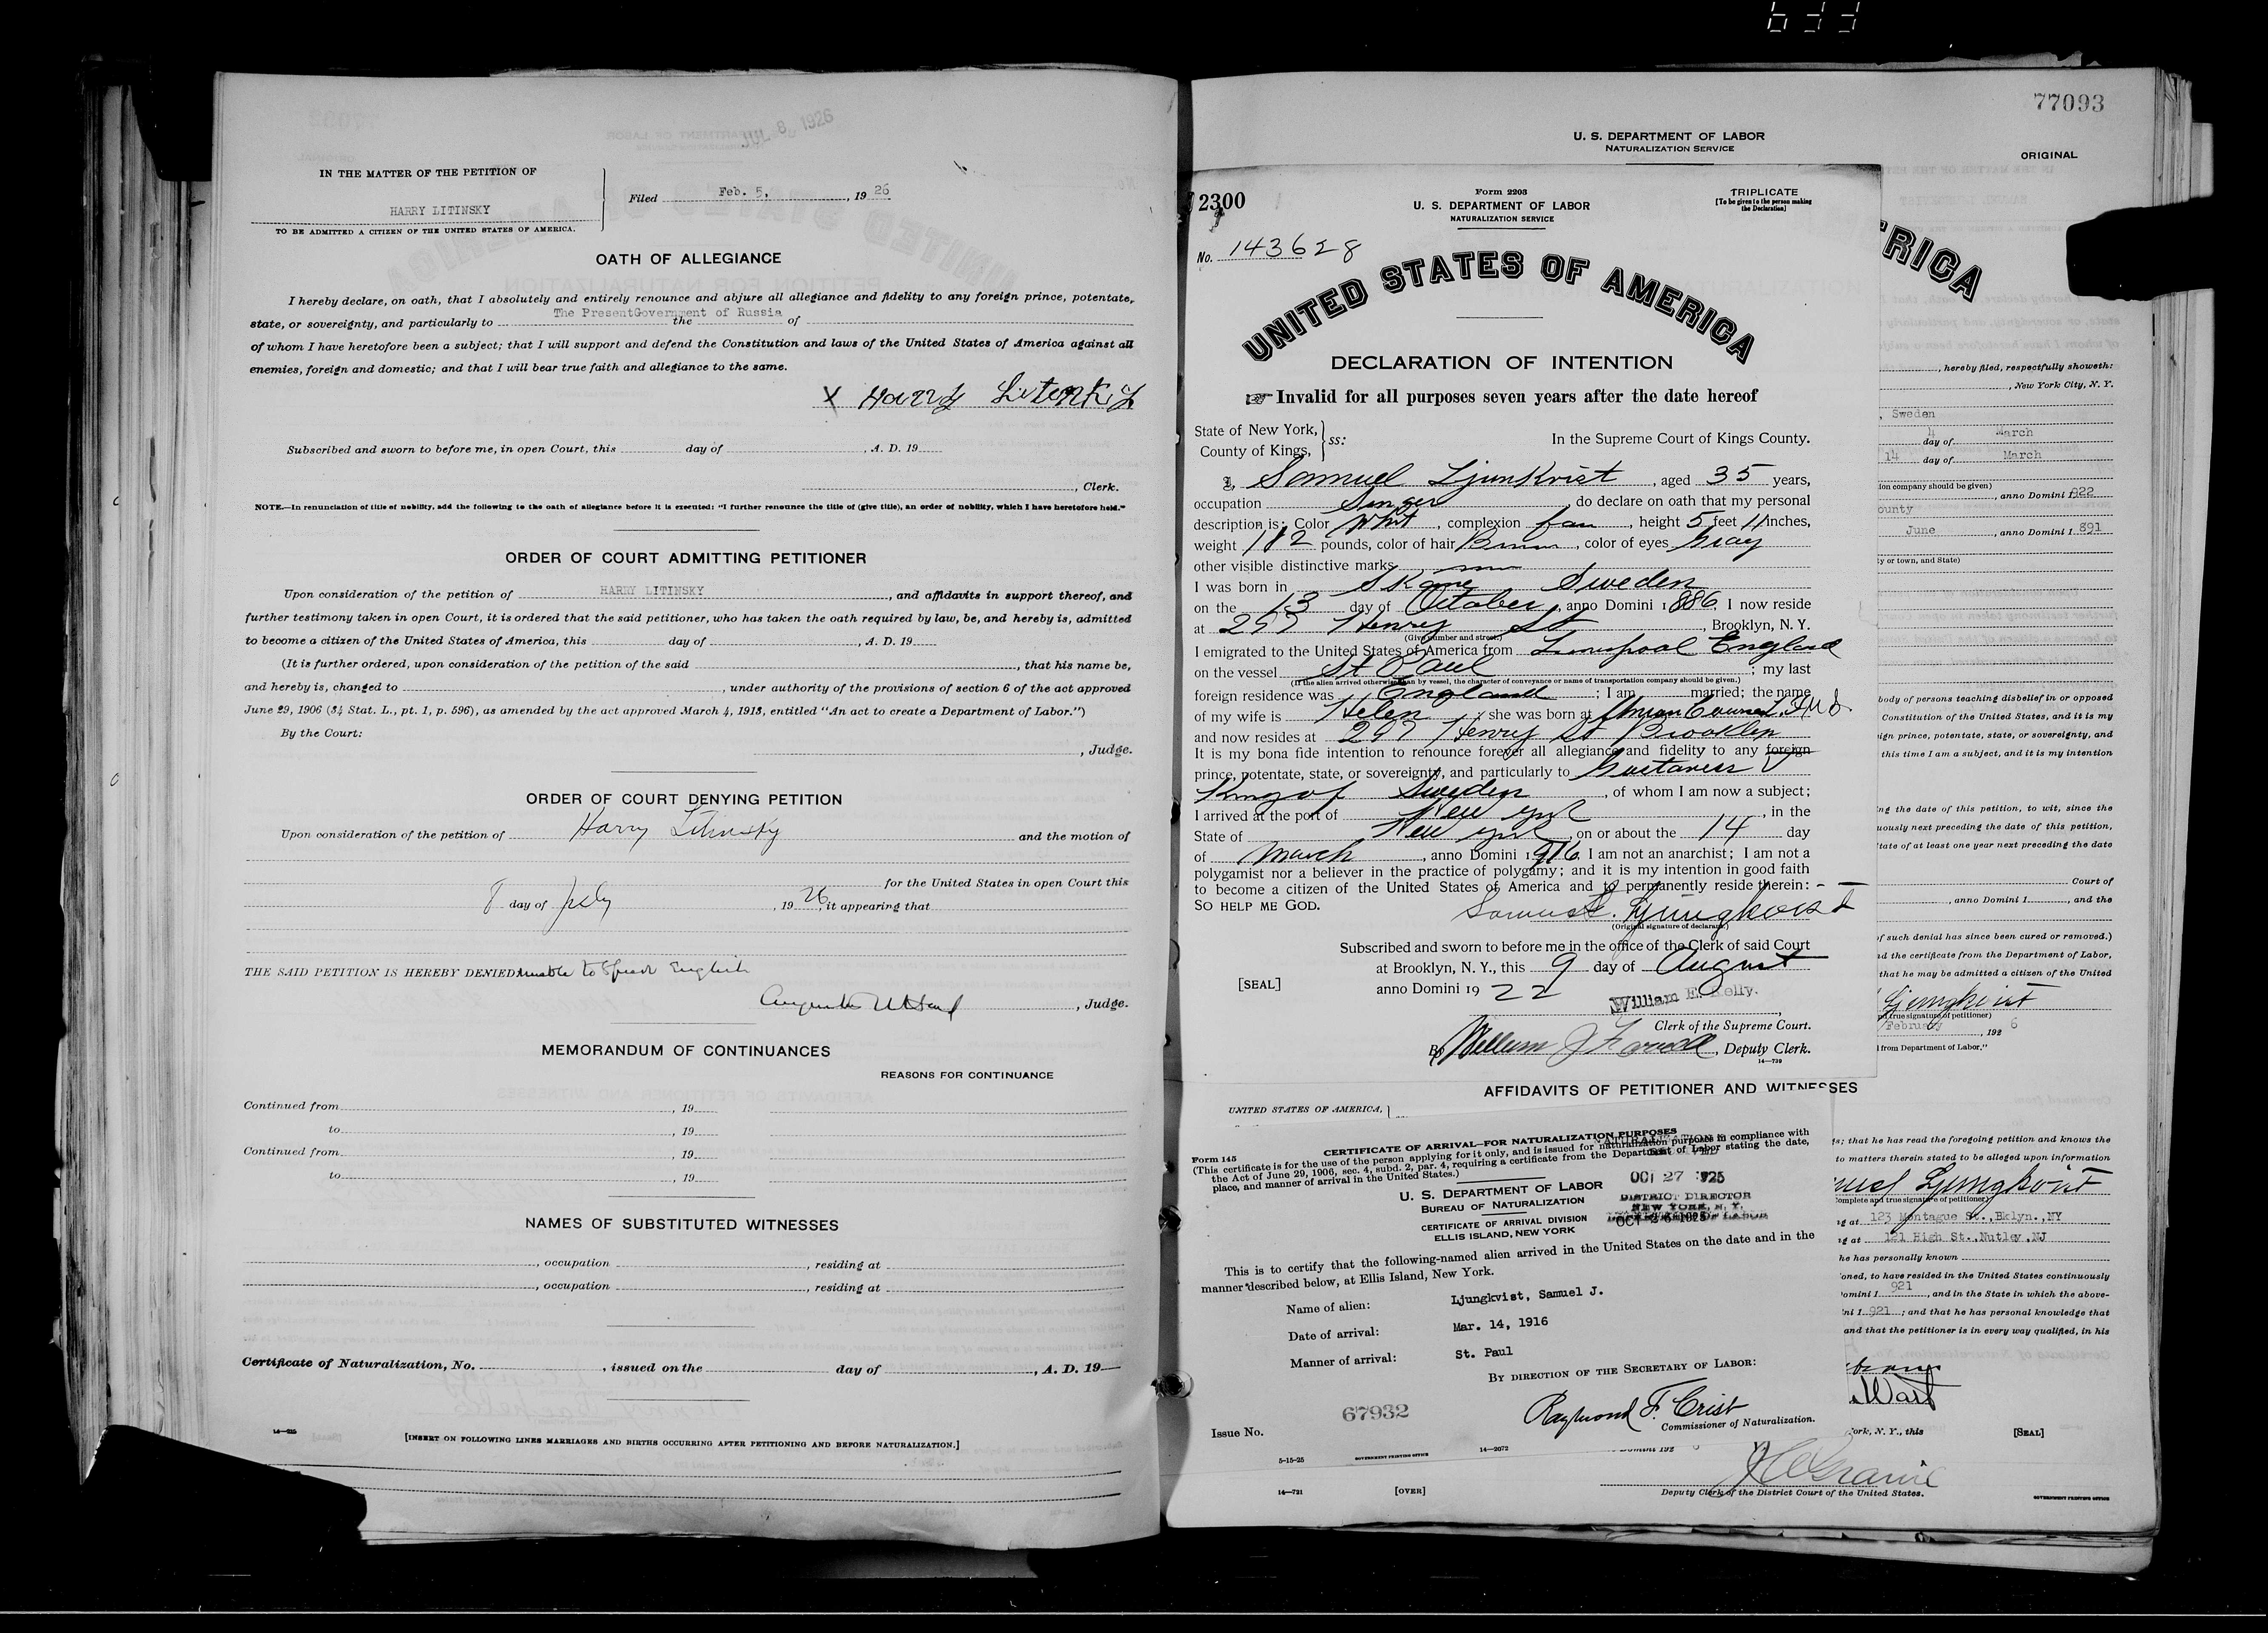 633
JUL 8 1926
IN THE MATTER OF THE PETITION OF
HARRY LITINSKY
TO BE ADMITTED A CITIZEN OF THE UNITED STATES OF AMERICA.
Filed Feb. 5, , 19 26
OATH OF ALLEGIANCE
I hereby declare, on oath, that I absolutely and entirely renounce and abjure all allegiance and fidelity to any foreign prince, potentate,
state, or sovereignty, and particularly to The PresentGovernment of Russia the of
of whom I have heretofore been a subject; that I will support and defend the Constitution and laws of the United States of America against all
enemies, foreign and domestic; and that I will bear true faith and allegiance to the same.
X Harry
Subscribed and sworn to before me, in open Court, this day of , A. D. 19
, Clerk.
NOTE.—In renunciation of title of nobility, add the following to the oath of allegiance before it is executed: "I further renounce the title of (give title), an order of nobility, which I have heretofore held."
ORDER OF COURT ADMITTING PETITIONER
Upon consideration of the petition of HARRY LITINSKY , and affidavits in support thereof, and
further testimony taken in open Court, it is ordered that the said petitioner, who has taken the oath required by law, be, and hereby is, admitted
to become a citizen of the United States of America, this day of , A. D. 19
(It is further ordered, upon consideration of the petition of the said , that his name be,
and hereby is, changed to , under authority of the provisions of section 6 of the act approved
June 29, 1906 (34 Stat. L., pt. 1, p. 596), as amended by the act approved March 4, 1913, entitled "An act to create a Department of Labor.")
By the Court:
, Judge.
ORDER OF COURT DENYING PETITION
Upon consideration of the petition of Harry Litinsky and the motion of
for the United States in open Court this
8 day of July , 19 26, it appearing that
THE SAID PETITION IS HEREBY DENIED unable to Speak English
, Judge.
MEMORANDUM OF CONTINUANCES
REASONS FOR CONTINUANCE
Continued from , 19
to , 19
Continued from , 19
to , 19
NAMES OF SUBSTITUTED WITNESSES
, occupation , residing at
, occupation , residing at
Certificate of Naturalization, No. , issued on the day of , A. D. 19
[INSERT ON FOLLOWING LINES MARRIAGES AND BIRTHS OCCURRING AFTER PETITIONING AND BEFORE NATURALIZATION.]
77093
U. S. DEPARTMENT OF LABOR
NATURALIZATION SERVICE
ORIGINAL
2300
Form 2203
U. S. DEPARTMENT OF LABOR
NATURALIZATION SERVICE
TRIPLICATE
[To be given to the person making
the Declaration]
No. 143628
UNITED STATES OF AMERICA
DECLARATION OF INTENTION
Invalid for all purposes seven years after the date hereof
State of New York,
County of Kings, ss:
In the Supreme Court of Kings County.
I, Samuel Ljunkvist , aged 35 years,
occupation Singer , do declare on oath that my personal
description is: Color Wht , complexion fair , height 5 feet 11 inches,
weight 182 pounds, color of hair Brown , color of eyes Gray
other visible distinctive marks
I was born in Skane Sweden
on the 13 day of October , anno Domini 1886. I now reside
at 297 Henry St , Brooklyn, N. Y.
(Give number and street.)
I emigrated to the United States of America from Liverpool England
on the vessel St Paul ; my last
(If the alien arrived otherwise than by vessel, the character of conveyance or name of transportation company should be given.)
foreign residence was England ; I am married; the name
of my wife is Helen ; she was born at
and now resides at 297 Henry St Brooklen
It is my bona fide intention to renounce forever all allegiance and fidelity to any foreign
prince, potentate, state, or sovereignty, and particularly to Gustavus V
King of Sweden , of whom I am now a subject;
I arrived at the port of New York , in the
State of New York , on or about the 14 day
of March , anno Domini 1916. I am not an anarchist; I am not a
polygamist nor a believer in the practice of polygamy; and it is my intention in good faith
to become a citizen of the United States of America and to permanently reside therein:
SO HELP ME GOD.
Samuel Ljungkvist
(Original signature of declarant.)
Subscribed and sworn to before me in the office of the Clerk of said Court
[SEAL] at Brooklyn, N. Y., this 9 day of August
anno Domini 19 22
William E. Kelly.
Clerk of the Supreme Court.
By William J , Deputy Clerk.
14—739
RICA
, hereby filed, respectfully showeth:
, New York City, N. Y.
, Sweden
4 day of March
14 day of March
ion company should be given)
, anno Domini 1922
ounty
June , anno Domini 1 891
y or town, and State)
body of persons teaching disbelief in or opposed
Constitution of the United States, and it is my
ign prince, potentate, state, or sovereignty, and
this time I am a subject, and it is my intention
ng the date of this petition, to wit, since the
uously next preceding the date of this petition,
tate of at least one year next preceding the date
Court of
, anno Domini 1 , and the
of such denial has since been cured or removed.)
nd the certificate from the Department of Labor,
that he may be admitted a citizen of the United
Ljungkvist
nd true signature of petitioner)
February , 192 6
d from Department of Labor."
AFFIDAVITS OF PETITIONER AND WITNESSES
UNITED STATES OF AMERICA,
Form 145
CERTIFICATE OF ARRIVAL—FOR NATURALIZATION PURPOSES
(This certificate is for the use of the person applying for it only, and is issued for naturalization purposes in compliance with
the Act of June 29, 1906, sec. 4, subd. 2, par. 4, requiring a certificate from the Department of Labor stating the date,
place, and manner of arrival in the United States.)
U. S. DEPARTMENT OF LABOR
BUREAU OF NATURALIZATION
CERTIFICATE OF ARRIVAL DIVISION
ELLIS ISLAND, NEW YORK
OCT 27 1925
DISTRICT DIRECTOR
NEW YORK, N. Y.
This is to certify that the following-named alien arrived in the United States on the date and in the
manner described below, at Ellis Island, New York.
Name of alien: Ljungkvist, Samuel J.
Date of arrival: Mar. 14, 1916
Manner of arrival: St. Paul
BY DIRECTION OF THE SECRETARY OF LABOR:
Raymond F. Crist
Commissioner of Naturalization.
Issue No. 67932
5-15-25 GOVERNMENT PRINTING OFFICE 14—2072
s; that he has read the foregoing petition and knows the
to matters therein stated to be alleged upon information
uel Ljungkvist
omplete and true signature of petitioner)
ng at 123 Montague St.,Bklyn.,NY
ng at 121 High St.,Nutley,NJ
he has personally known
oned, to have resided in the United States continuously
omini 1 921 , and in the State in which the above-
ni 1 921 ; and that he has personal knowledge that
and that the petitioner is in every way qualified, in his
York, N. Y., this [SEAL]
14—721 [OVER]
Deputy Clerk of the District Court of the United States.
GOVERNMENT PRINTING OFFICE